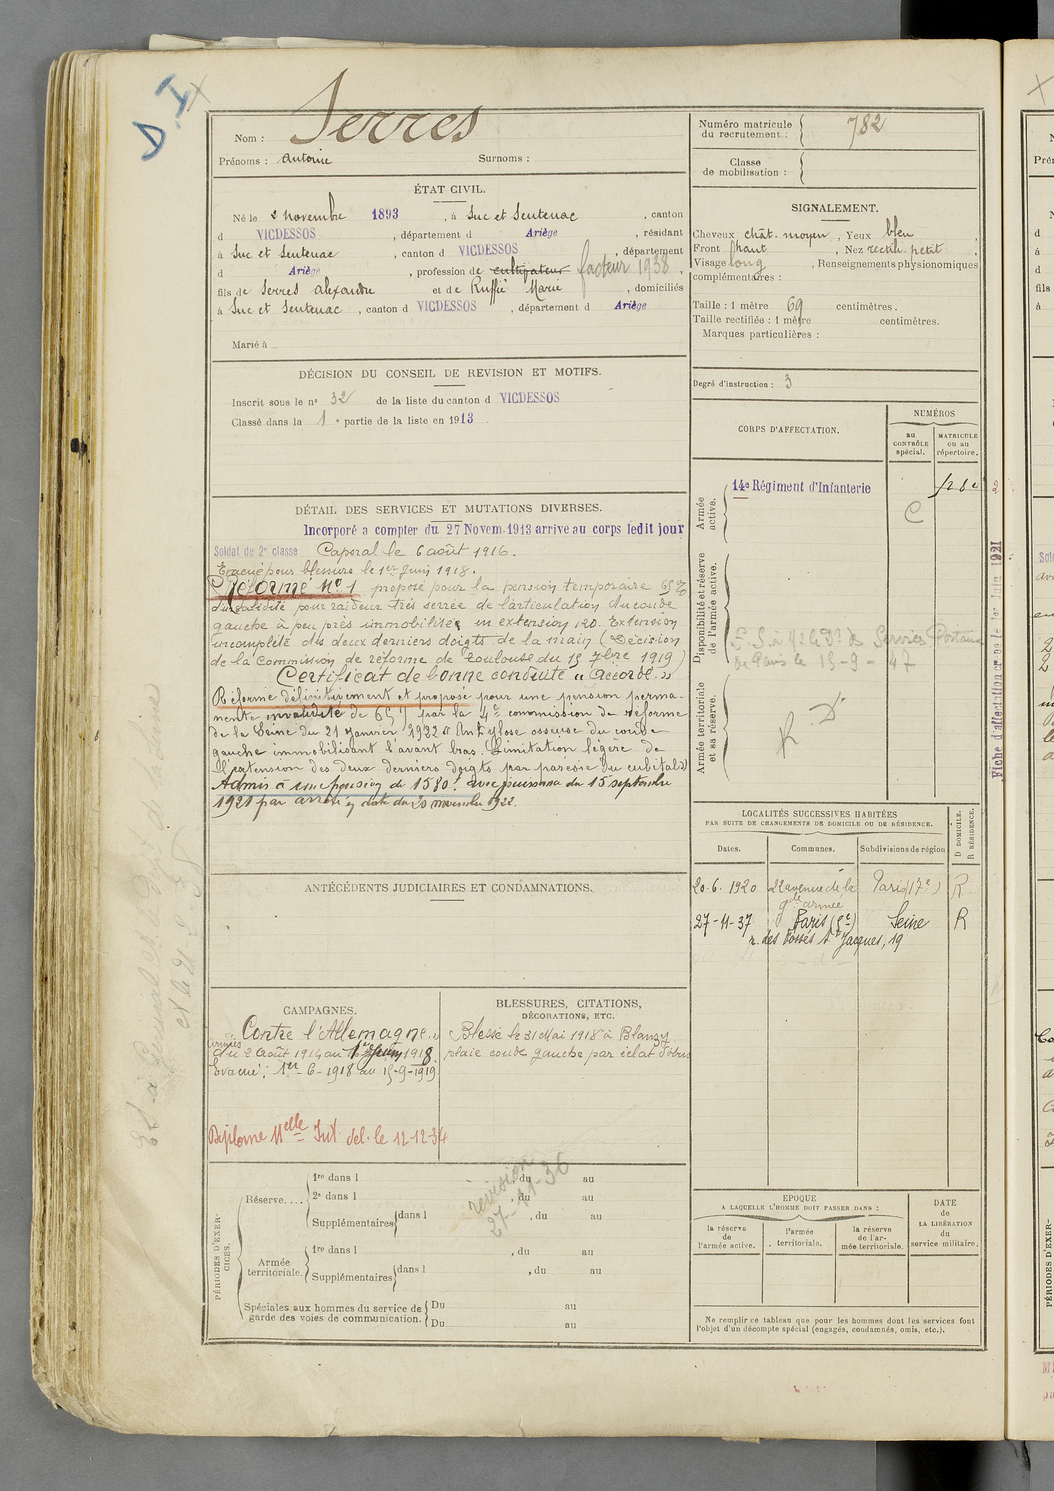 D. I
Nom : Serres
Prénoms : Antoine Surnoms :
ÉTAT CIVIL.
Né le 2 novembre 1893, à Suc et Sentenac, canton
d VICDESSOS, département d Ariège, résidant
à Suc et Sentenac, canton d VICDESSOS, département
d Ariège, profession de cultivateur facteur 1938,
fils de Serres Alexandre et de Ruffié Marie, domiciliés
à Suc et Sentenac, canton d VICDESSOS, département d Ariège
Marié à
DÉCISION DU CONSEIL DE REVISION ET MOTIFS.
Inscrit sous le no 32 de la liste du canton d VICDESSOS
Classé dans la 1e partie de la liste en 1913
DÉTAIL DES SERVICES ET MUTATIONS DIVERSES.
Incorporé a compter du 27 Novem. 1913 arrive au corps ledit jour
Soldat de 2e classe Caporal le 6 août 1916.
Evacué pour blessure le 1er Juin 1918.
Réformé No 1 proposé pour la pension temporaire 65 %
d'invalidité pour raideur très serrée de l'articulation du coude
gauche à peu près immobilisée en extension 120. Extension
incomplète des deux derniers doigts de la main (Décision
de la Commission de réforme de Toulouse du 15 7bre 1919)
Certificat de bonne conduite "Accordé."
Réformé définitivement et proposé pour une pension perma-
nente invalidité de 65 % par la 4e commission de réforme
de la Seine du 21 janvier 1922 "Ankylose osseuse du coude
gauche immobilisant l'avant bras. Limitation légère de
l'extension des deux derniers doigts par parésie du cubital"
Admis à une pension de 1580f. avec jouissance du 15 septembre
1921 par arrêté en date du 20 novembre 1922.
ANTÉCÉDENTS JUDICIAIRES ET CONDAMNATIONS.
CAMPAGNES.
Contre l'Allemagne."
Armées
du 2 Août 1914 au 1er Juin 1918.
Evacué : 1er-6-1918 au 15-9-1919
Diplome Melle Inf. del. le 12-12-34
BLESSURES, CITATIONS,
DÉCORATIONS, ETC.
Blessé le 31 Mai 1918 à Blanzy
plaie coude gauche par éclat d'obus
PÉRIODES D'EXERCICES.
Réserve....
1re dans l , du au
2e dans l , du au
Supplémentaires dans l , du au
revision
27-11-36
Armée territoriale.
1re dans l , du au
Supplémentaires dans l , du au
Spéciales aux hommes du service de
garde des voies de communication.
Du au
Du au
Numéro matricule
du recrutement : 782
Classe
de mobilisation :
SIGNALEMENT.
Cheveux chât. moyen, Yeux bleu
Front haut, Nez rectil. petit,
Visage long, Renseignements physionomiques
complémentaires :
Taille : 1 mètre 69 centimètres.
Taille rectifiée : 1 mètre centimètres.
Marques particulières :
Degré d'instruction : 3
CORPS D'AFFECTATION.
NUMÉROS
au
CONTRÔLE
spécial.
MATRICULE
ou au
répertoire.
Armée
active.
14e Régiment d'Infanterie
C
Disponibilité et réserve
de l'armée active.
de Paris le 15-9-47
Armée territoriale
et sa réserve.
R D
LOCALITÉS SUCCESSIVES HABITÉES
PAR SUITE DE CHANGEMENTS DE DOMICILE OU DE RÉSIDENCE.
D DOMICILE.
R RÉSIDENCE.
Dates. Communes. Subdivisions de région
20-6-1920 22 avenue de la gde armée Paris (17e) R
27-11-37 Paris (5e) Seine R
r. des Fossés St Jacques, 19
EPOQUE
A LAQUELLE L'HOMME DOIT PASSER DANS :
la réserve
de
l'armée active.
l'armée
territoriale.
la réserve
de l'ar-
mée territoriale.
DATE
de
LA LIBÉRATION
du
service militaire.
Ne remplir ce tableau que pour les hommes dont les services font
l'objet d'un décompte spécial (engagés, condamnés, omis, etc.).